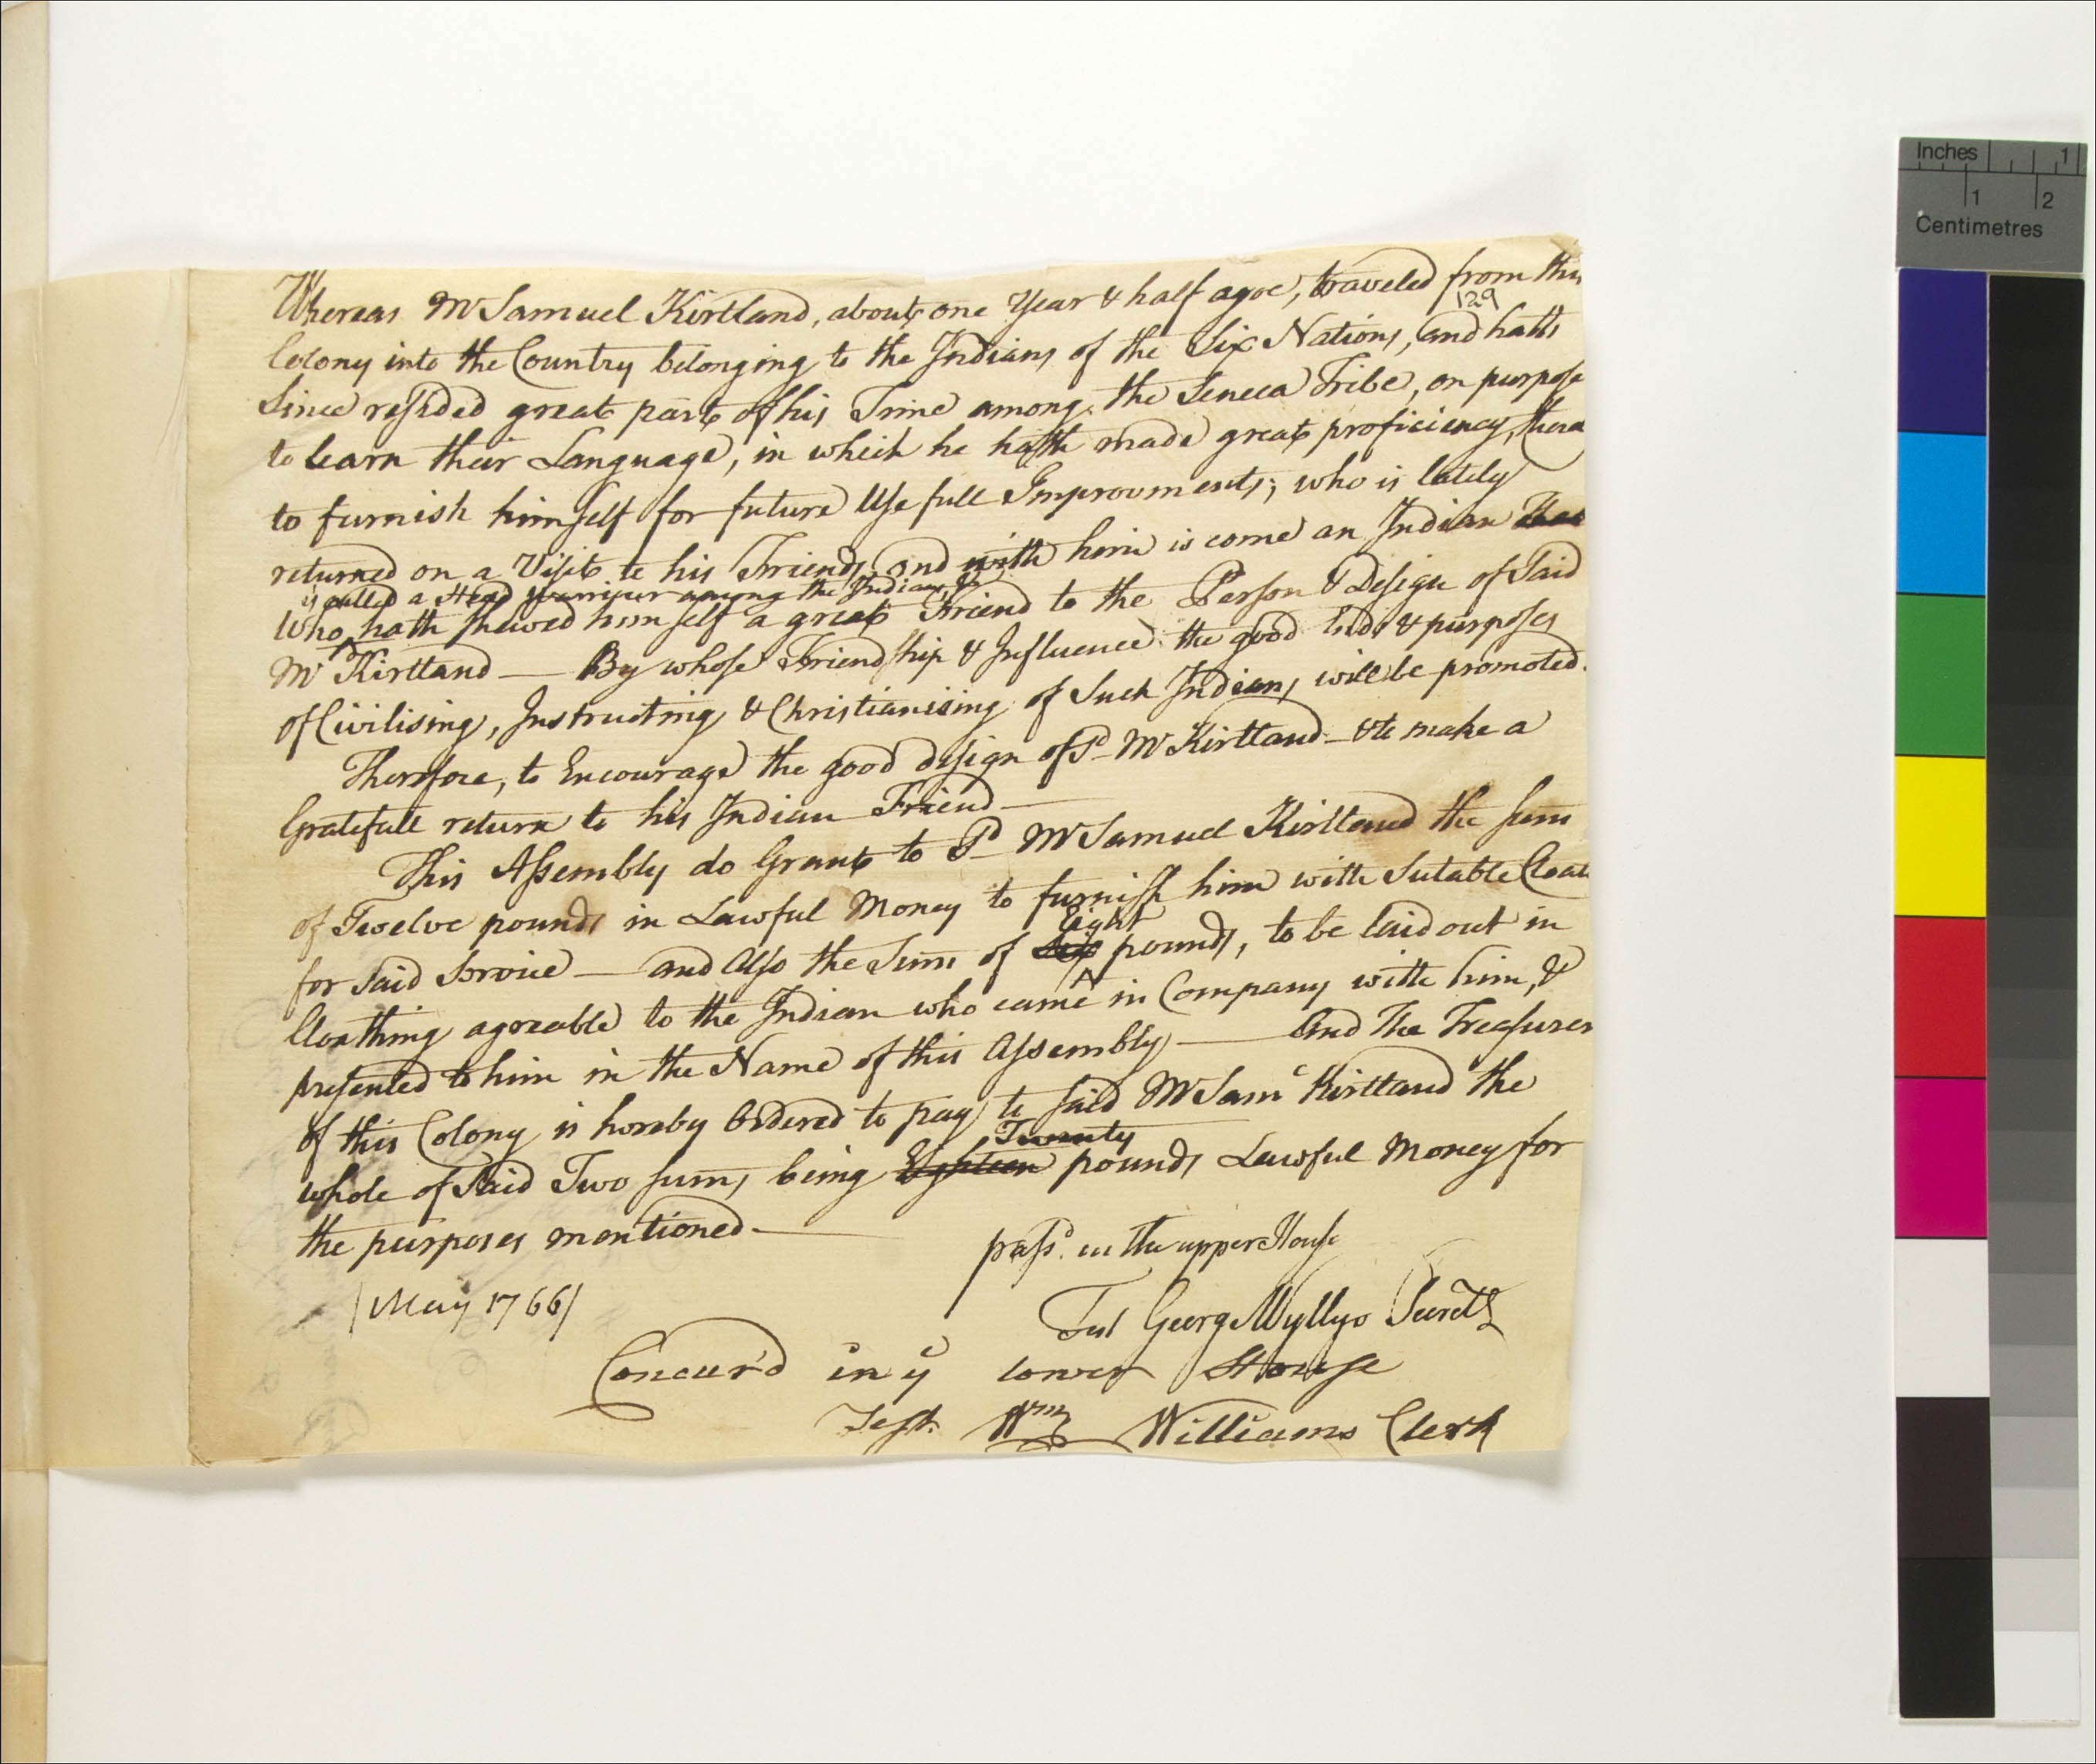 Whereas Mr Samuel Kirtland, about one Year & half agoe, traveled from this
129
Colony into the Country belonging to the Indians of the Six Nations, and hath
Since resided great part of his Time among the Seneca Tribe, on purpose
to learn their Language, in which he hath made great proficiency, there
to furnish himself for future Usefull Improvments; who is lately
returned on a Visit to his Friends, and with him is come an Indian
is called a Head Warriour among the Indians, &
Who hath shewed himself a great Friend to the Person & Design of Said
Mr Kirtland — By whose Friendship & Influence the good Ends & purposes
of Civilising, Instructing & Christianising of Such Indians will be promoted.
Therefore, to Encourage the good design of sd Mr Kirtland — & to make a
Gratefull return to his Indian Friend —
This Assembly do Grant to sd Mr Samuel Kirtland the sum
of Twelve pounds in Lawful Money to furnish him with Sutable Cloat
Eight
for Said Service — and Also the Sum of Six pounds, to be laid out in
Cloathing agreable to the Indian who came in Company with him, &
presented to him in the Name of this Assembly — And The Treasurer
of this Colony is hereby Ordered to pay to said Mr Saml Kirtland the
Twenty
whole of Said Two sums being Eighteen pounds Lawful Money for
the purposes mentioned —
pass'd in the upper House
(May 1766)
Test George Wyllys Secrety
Concur'd in ye lower House
Test. Wm Williams Clerk
Inches 1
1 2
Centimetres